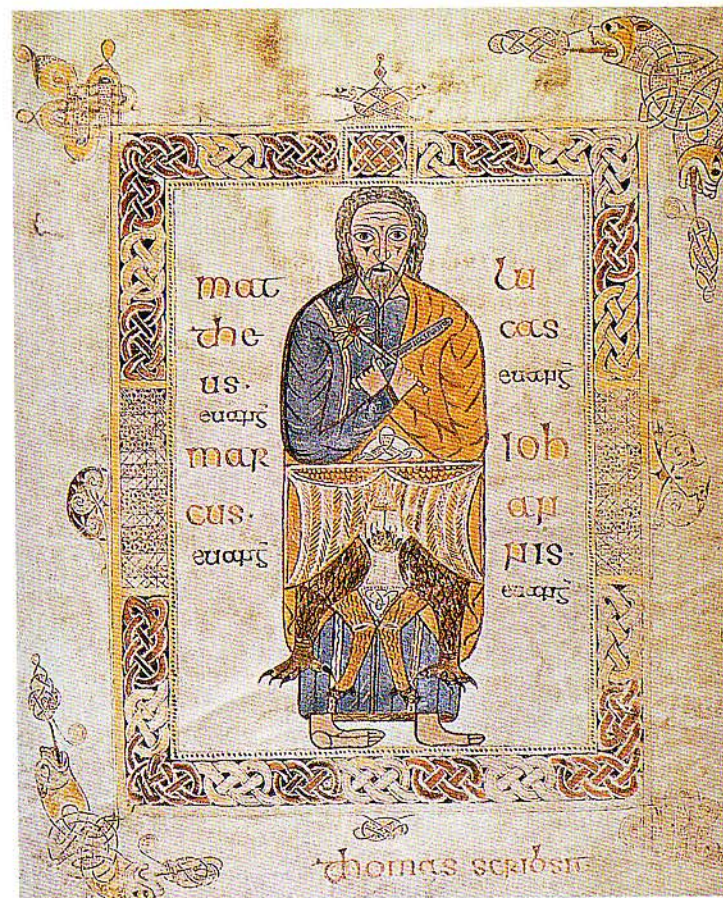 mat
the
us·
euang
mar
cus·
euang
lu
cas·
euang
ioh
an
nis·
euang
thomas scribsit